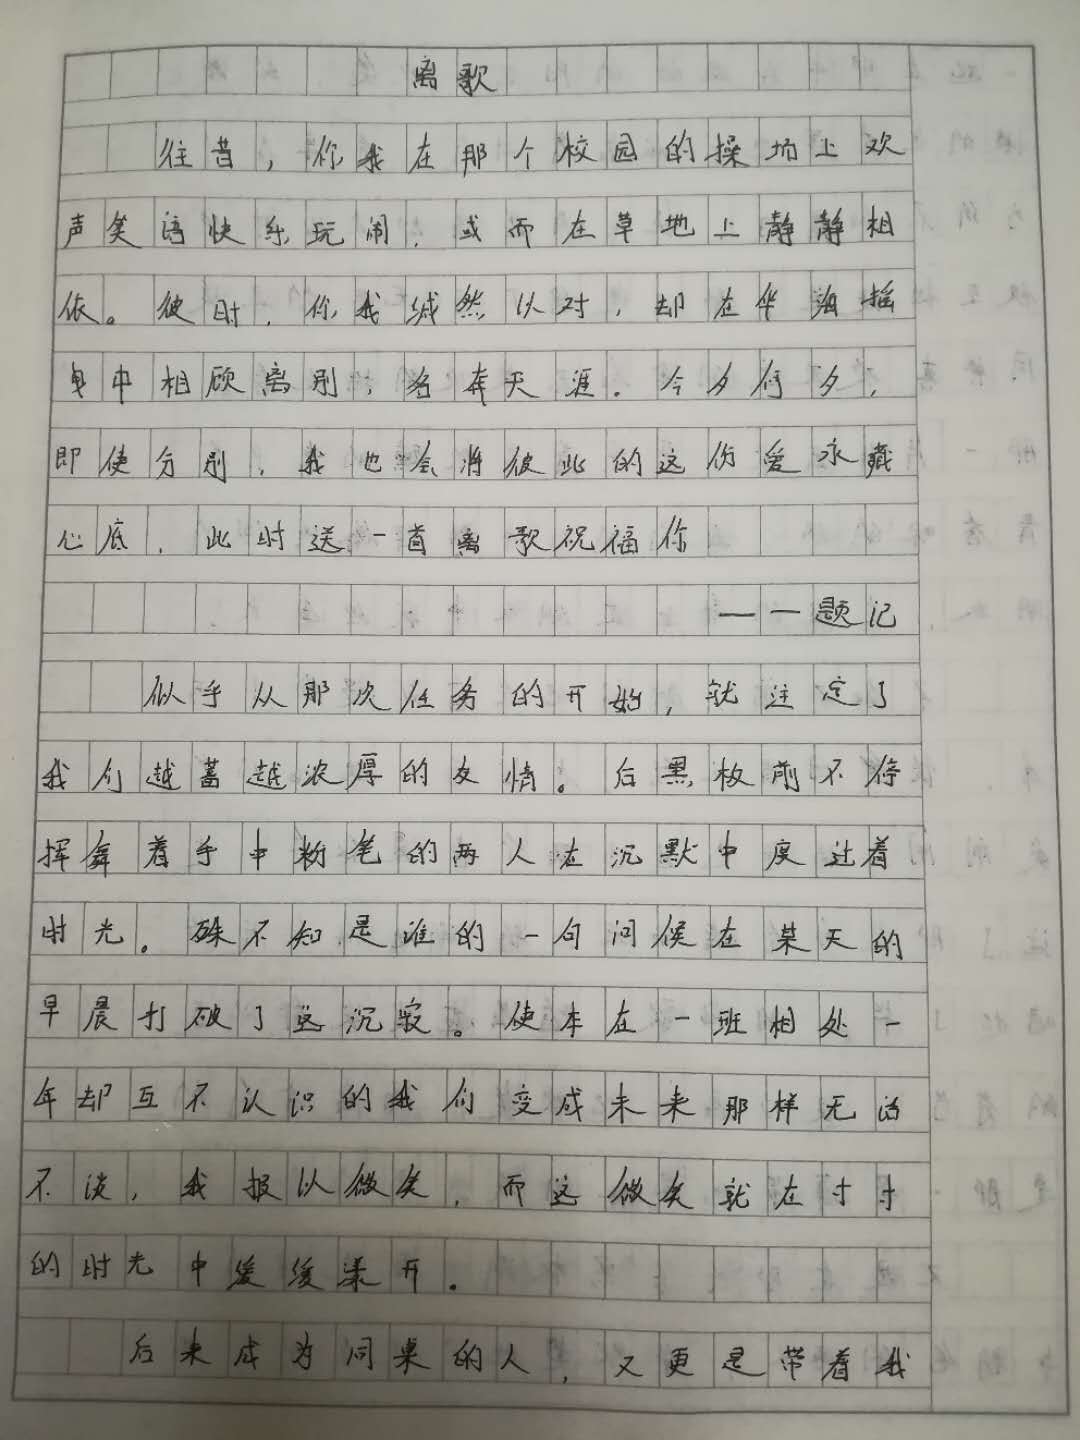 离歌
往昔，你我在那个校园的操场上欢
声笑语快乐玩闹，或而在草地上静静相
依。彼时，你我缄然以对，却在华海摇
曳中相顾离别，各奔天涯。今夕何夕，
即使分别，我也会将彼此的这份爱永藏
心底，此时送一首离歌祝福你
——题记
似乎从那次任务的开始，就注定了
我们越蓄越浓厚的友情。后黑板前不停
挥舞着手中粉笔的两人在沉默中度过着
时光。殊不知是谁的一句问候在某天的
早晨打破了这沉寂。使本在一班相处一
年却互不认识的我们变成未来那样无话
不谈，我报以微笑，而这微笑就在寸寸
的时光中缓缓漾开。
后来成为同桌的人，又更是带着我